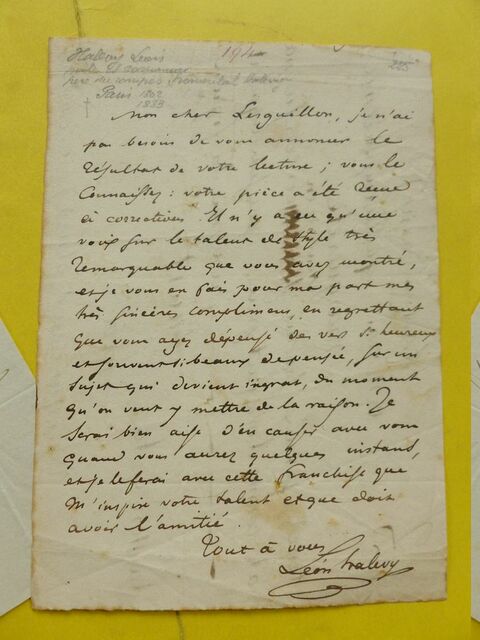 Halévy Léon
Paris 1802
1883
Mon cher Lesguillon, je n'ai
pas besoin de vous annoncer le
résultat de votre lecture ; vous le
connaissez : votre pièce a été reçue
à corrections. Il n'y a eu qu'une
voix sur le talent de style très
remarquable que vous avez montré,
et je vous en fais pour ma part mes
très sincères complimens, en regrettant
que vous ayez dépensé des vers si heureux
et souvent si beaux de pensée, sur un
sujet qui devient ingrat, du moment
qu'on veut y mettre de la raison. Je
serai bien aise d'en causer avec vous
quand vous aurez quelques instans,
et je le ferai avec cette franchise que
m'inspire votre talent et que doit
avoir l'amitié.
Tout à vous
Léon halevy